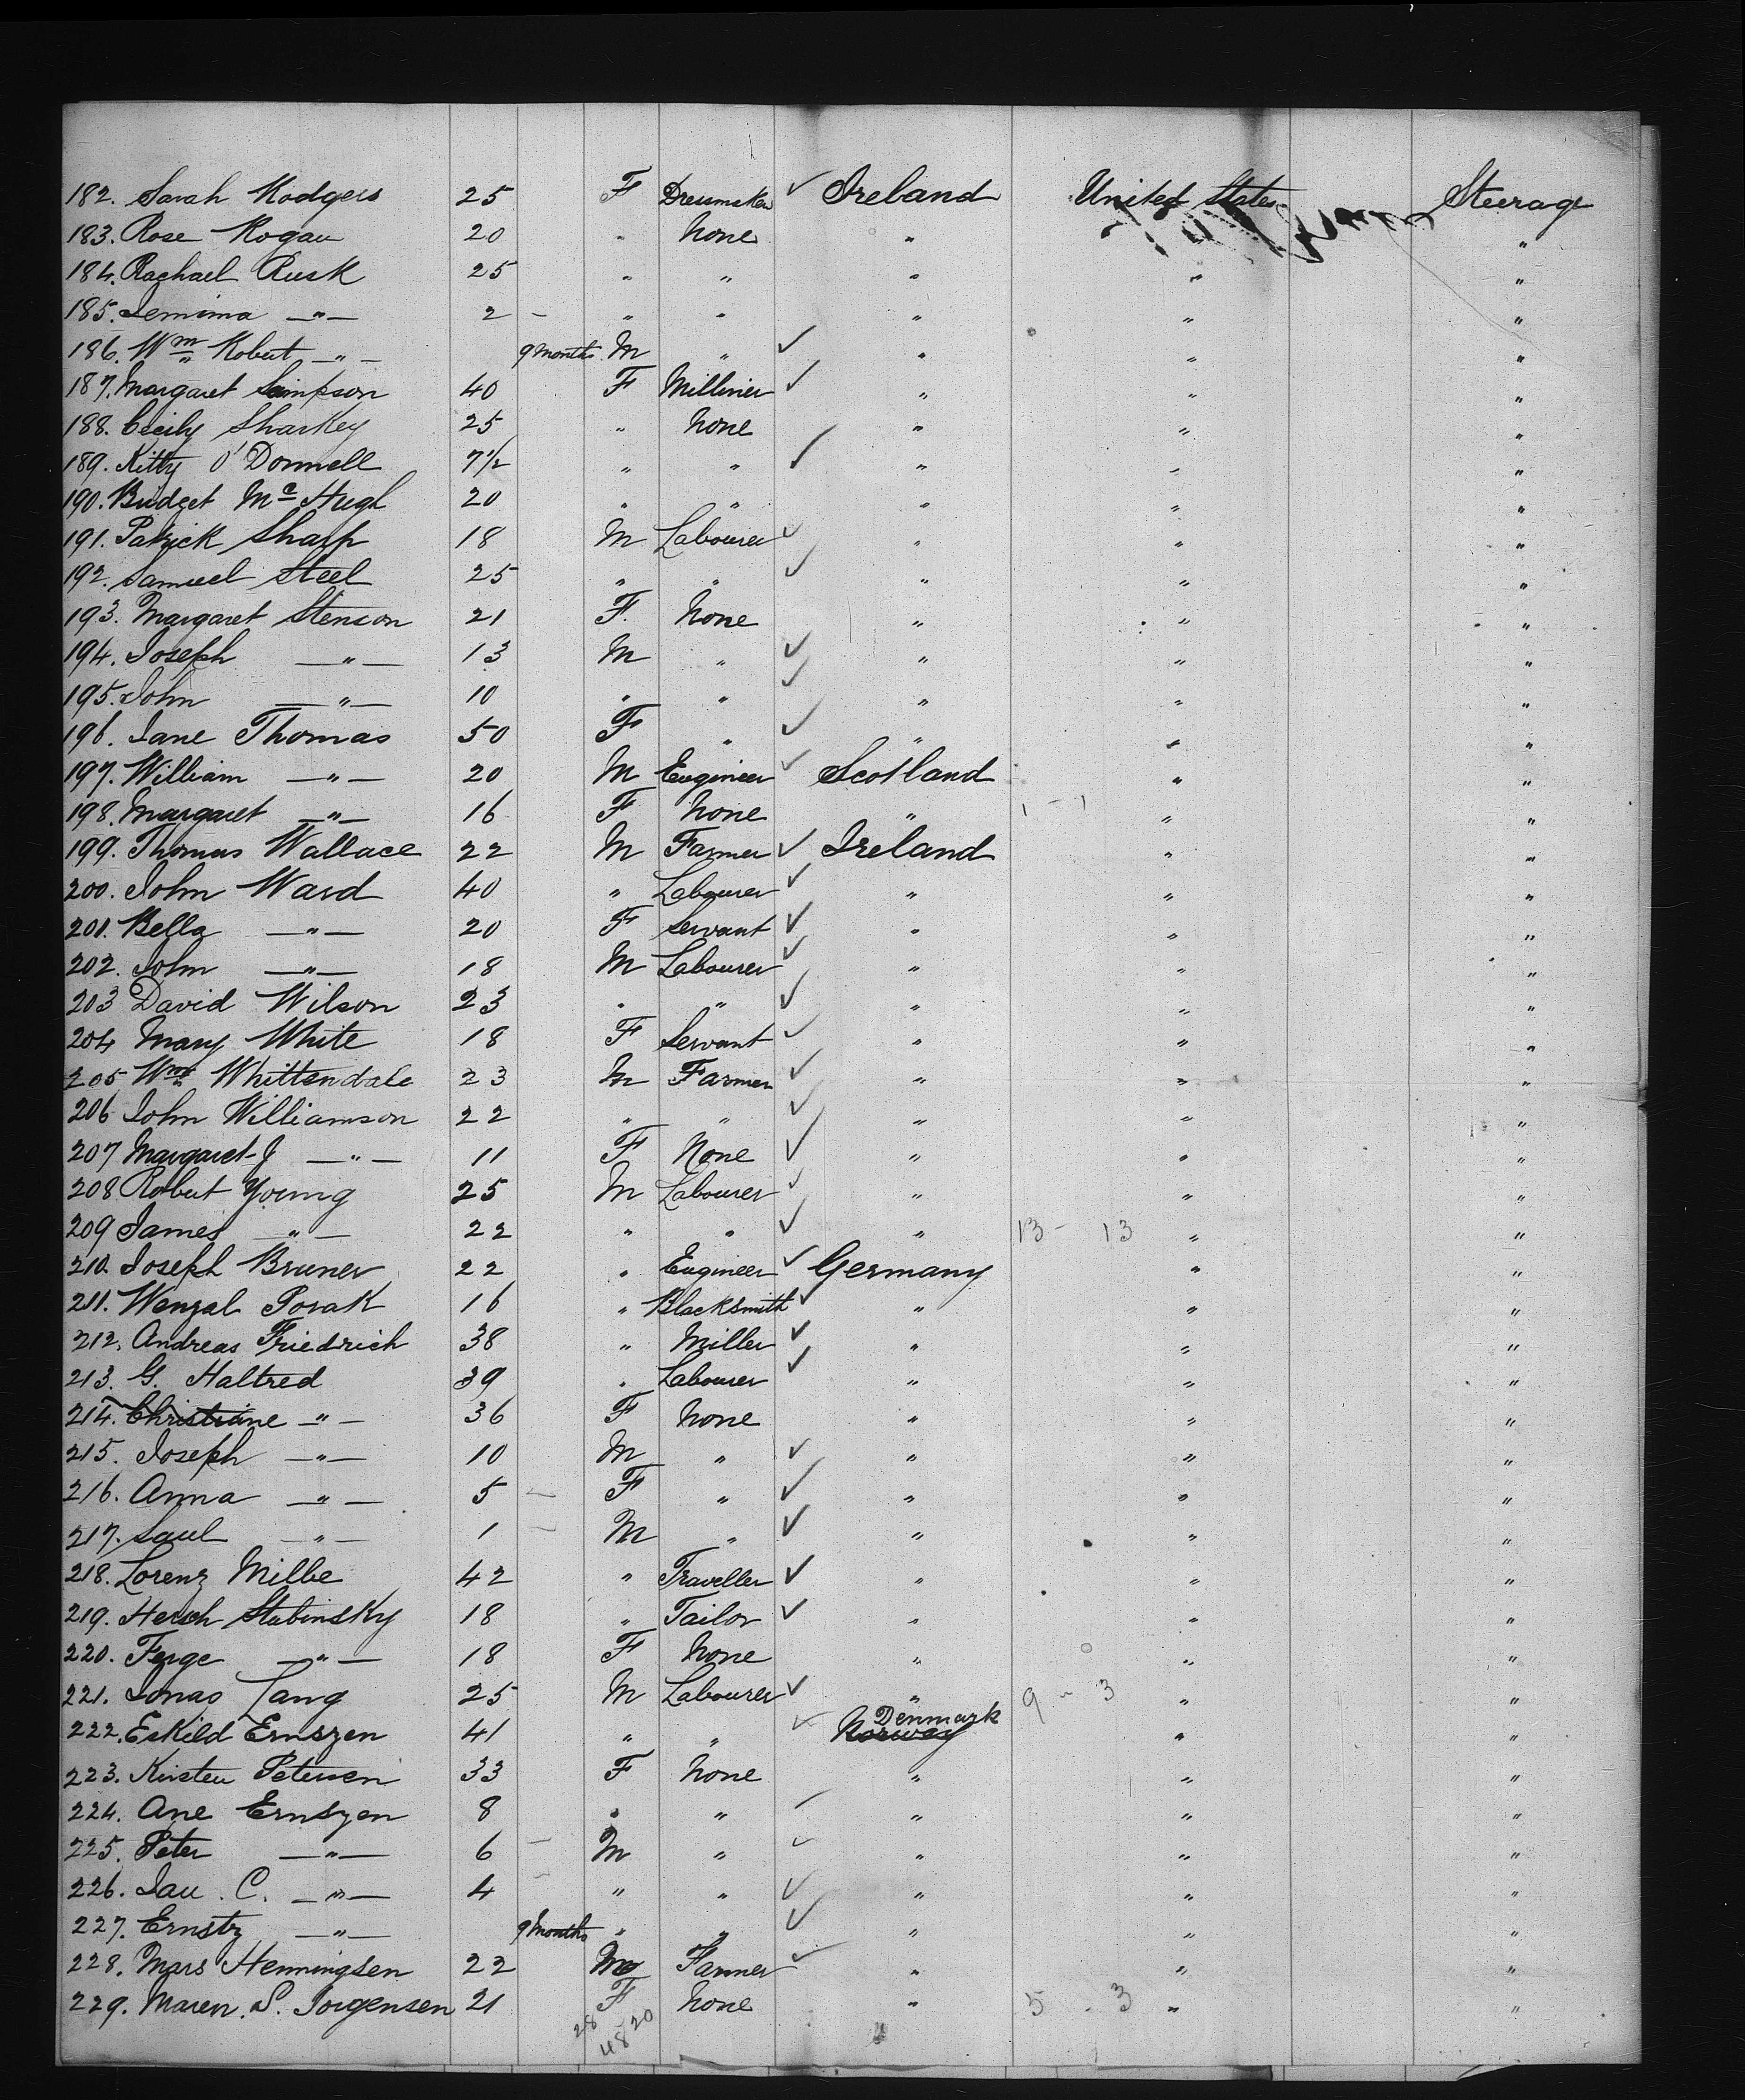 182. Sarah Rodgers 25 F Dressmaker ✓ Ireland United States Steerage
183. Rose Rogan 20 " None " "
184. Rachael Rusk 25 " " " " "
185. Jemima —"— 2 – " " " " "
186. Wm Robert —"— 9 months M " ✓ " " "
187. Margaret Simpson 40 F Milliner ✓ " " "
188. Cicily Sharkey 25 " None " " "
189. Kitty O'Donnell 7½ " " ✓ " " "
190. Bridget Mc Hugh 20 " " " " "
191. Patrick Sharp 18 M Labourer ✓ " " "
192. Samuel Steel 25 " " ✓ " " "
193. Margaret Stenson 21 F. None " " "
194. Joseph —"— 13 M " ✓ " " "
195. John —"— 10 " " ✓ " " "
196. Jane Thomas 50 F " ✓ " " "
197. William —"— 20 M Engineer ✓ Scotland " "
198. Margaret —"— 16 F None " 1 - 1 " "
199. Thomas Wallace 22 M Farmer ✓ Ireland " "
200. John Ward 40 " Labourer ✓ " " "
201. Bella —"— 20 F Servant ✓ " " "
202. John —"— 18 M Labourer ✓ " " "
203 David Wilson 23 " " ✓ " " "
204 Mary White 18 F Servant ✓ " " "
205 Wm Whittendale 23 M Farmer ✓ " " "
206 John Williamson 22 " " ✓ " " "
207 Margaret J —"— 11 F None ✓ " " "
208 Robert Young 25 M Labourer ✓ " " "
209 James —"— 22 " " ✓ " 13 - 13 " "
210. Joseph Bruner 22 " Engineer ✓ Germany " "
211. Wenzal Porak 16 " Blacksmith ✓ " " "
212. Andreas Friedrich 38 " Miller ✓ " " "
213. G. Haltred 39 " Labourer ✓ " " "
214. Christiane —"— 36 F None " " "
215. Joseph —"— 10 M " ✓ " " "
216. Anna —"— 5 – F " ✓ " " "
217. Saul —"— 1 – M " ✓ " " "
218. Lorenz Milbe 42 " Traveller ✓ " " "
219. Hersch Stabinsky 18 " Tailor ✓ " " "
220. Feige —"— 18 F None " " "
221. Jonas Lang 25 M Labourer ✓ " 9 - 3 " "
222. Eskild Ernszen 41 " " ✓ Norway Denmark " "
223. Kirsten Petersen 33 F None " " "
224. Ane Ernszen 8 " " ✓ " " "
225. Peter —"— 6 – M " ✓ " " "
226. Jau. C. —"— 4 – " " ✓ " " "
227. Ernstz —"— 9 Months " " ✓ " " "
228. Mars Henningsen 22 M Farmer ✓ " " "
229. Maren. S. Jorgensen 21 F None " 5 - 3 " "
28 20
48